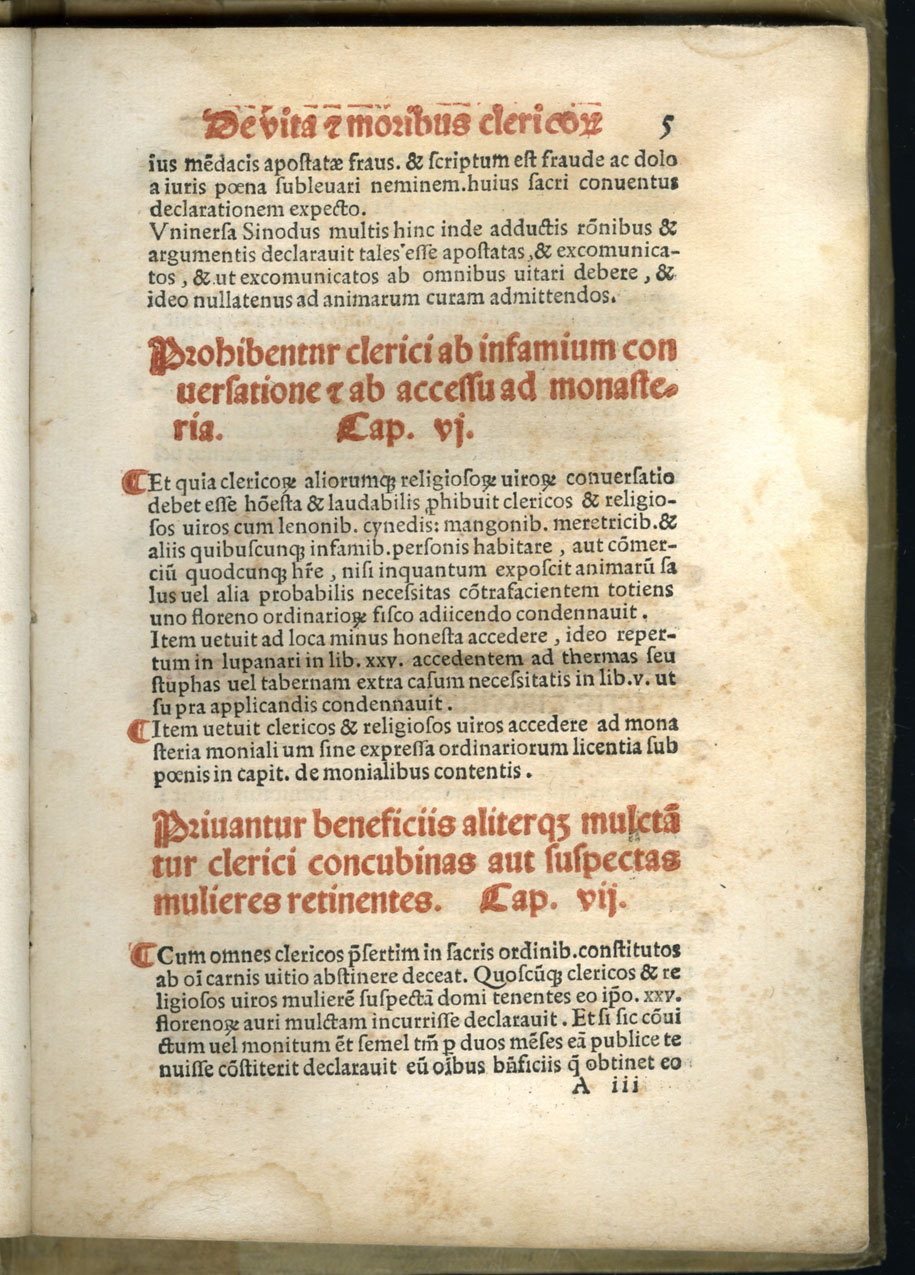 De vita ⁊ moribus clericoꝝ 5
ius mēdacis apostatæ fraus. & scriptum est fraude ac dolo
a iuris pœna subleuari neminem. huius sacri conuentus
declarationem expecto.
Vninersa Sinodus multis hinc inde adductis rōnibus &
argumentis declarauit tales esse apostatas, & excomunica-
tos, & ut excomunicatos ab omnibus uitari debere, &
ideo nullatenus ad animarum curam admittendos.
Prohibentnr clerici ab infamium con
uersatione ⁊ ab accessu ad monaste-
ria. Cap. vj.
¶ Et quia clericoꝝ aliorumqꝫ religiosoꝝ uiroꝝ conuersatio
debet esse hōesta & laudabilis ꝓhibuit clericos & religio-
sos uiros cum lenonib. cynedis: mangonib. meretricib. &
aliis quibuscunqꝫ infamib. personis habitare, aut cōmer-
ciū quodcunqꝫ hr̄e, nisi inquantum exposcit animarū sa
lus uel alia probabilis necessitas cōtrafacientem totiens
uno floreno ordinarioꝝ fisco adiicendo condennauit.
Item uetuit ad loca minus honesta accedere, ideo reper-
tum in lupanari in lib. xxv. accedentem ad thermas seu
stuphas uel tabernam extra casum necessitatis in lib. v. ut
su pra applicandis condennauit.
¶ Item uetuit clericos & religiosos uiros accedere ad mona
steria moniali um sine expressa ordinariorum licentia sub
pœnis in capit. de monialibus contentis.
Priuantur beneficiis aliterqꝫ mulctā
tur clerici concubinas aut suspectas
mulieres retinentes. Cap. vij.
¶ Cum omnes clericos p̄sertim in sacris ordinib. constitutos
ab oī carnis uitio abstinere deceat. Quoscūqꝫ clericos & re
ligiosos uiros mulierē suspectā domi tenentes eo ip̄o. xxv.
florenoꝝ auri mulctam incurrisse declarauit. Et si sic cōui
ctum uel monitum ēt semel tm̄ p duos mēses eā publice te
nuisse cōstiterit declarauit eū oībus bn̄ficiis q̄ obtinet eo
A iii